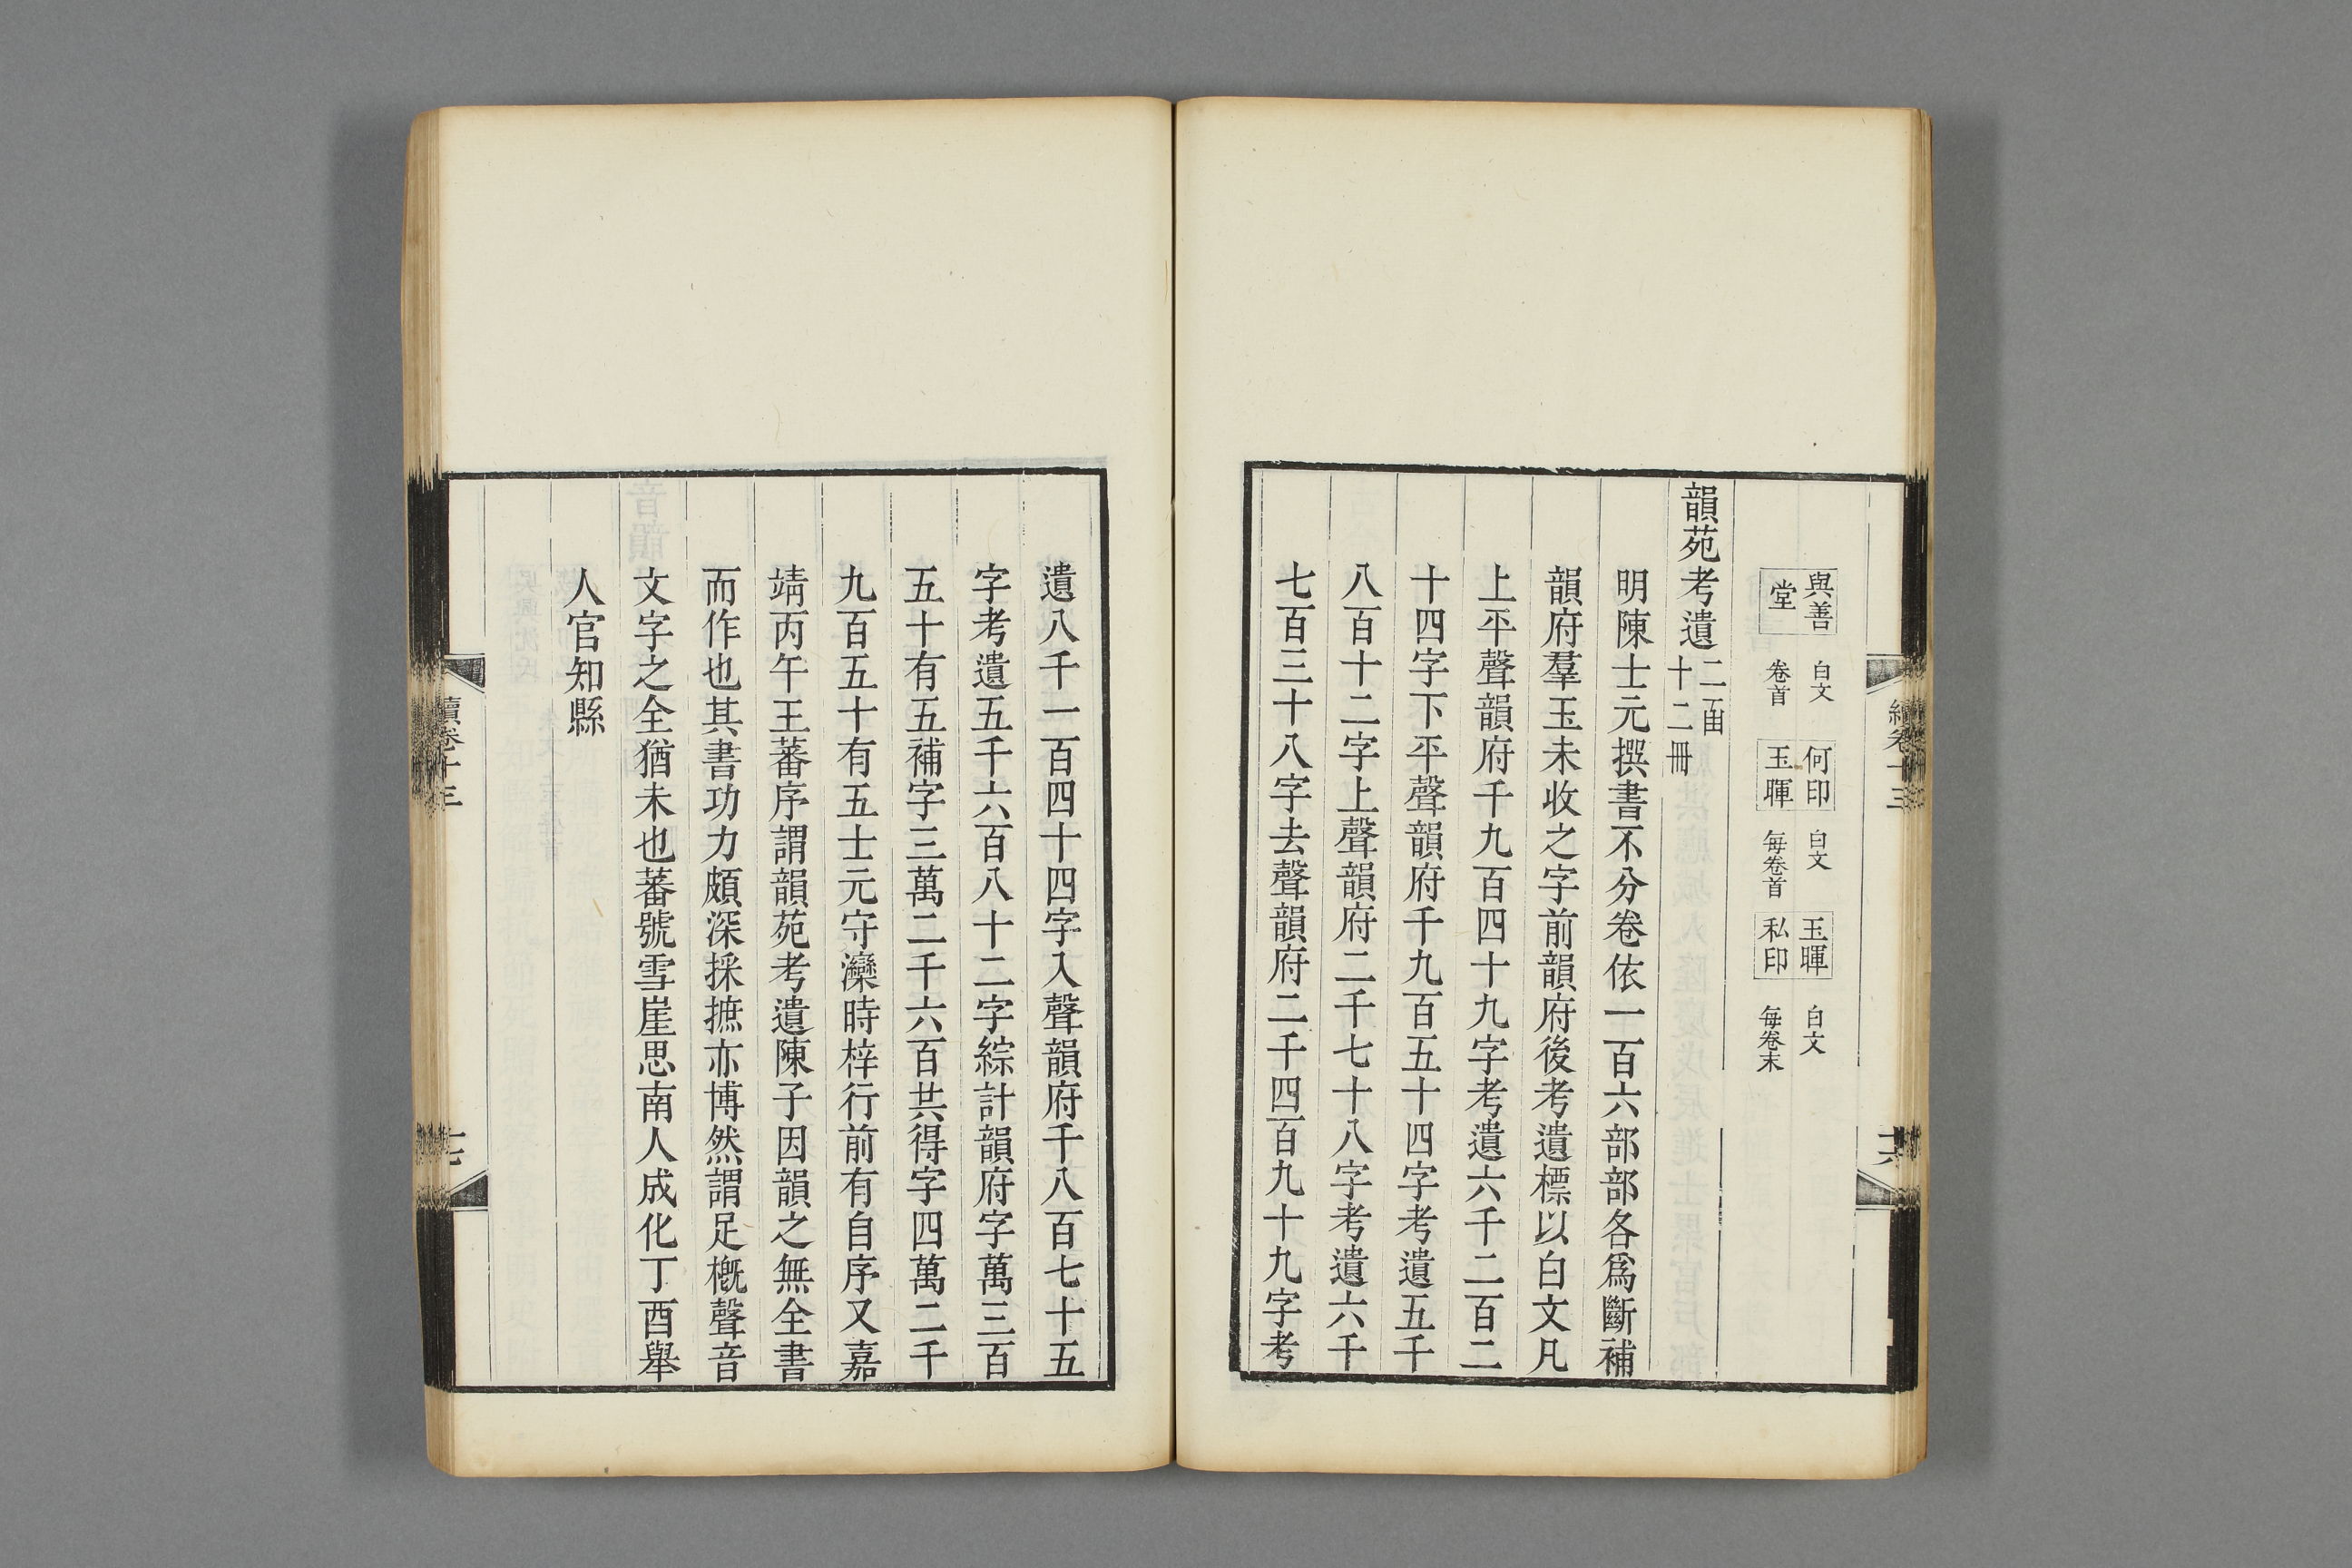 與善堂 白文卷首 何印玉暉 白文每卷首 玉暉私印 白文每卷末
韻苑考遺 二函十二冊
明陳士元撰書不分卷依一百六部部各爲斷補
韻府羣玉未收之字前韻府後考遺標以白文凡
上平聲韻府千九百四十九字考遺六千二百二
十四字下平聲韻府千九百五十四字考遺五千
八百十二字上聲韻府二千七十八字考遺六千
七百三十八字去聲韻府二千四百九十九字考
續卷十三
十六
遺八千一百四十四字入聲韻府千八百七十五
字考遺五千六百八十二字綜計韻府字萬三百
五十有五補字三萬二千六百共得字四萬二千
九百五十有五士元守灤時梓行前有自序又嘉
靖丙午王蕃序謂韻苑考遺陳子因韻之無全書
而作也其書功力頗深採摭亦博然謂足槪聲音
文字之全猶未也蕃號雪崖思南人成化丁酉舉
人官知縣
續卷十三
十七